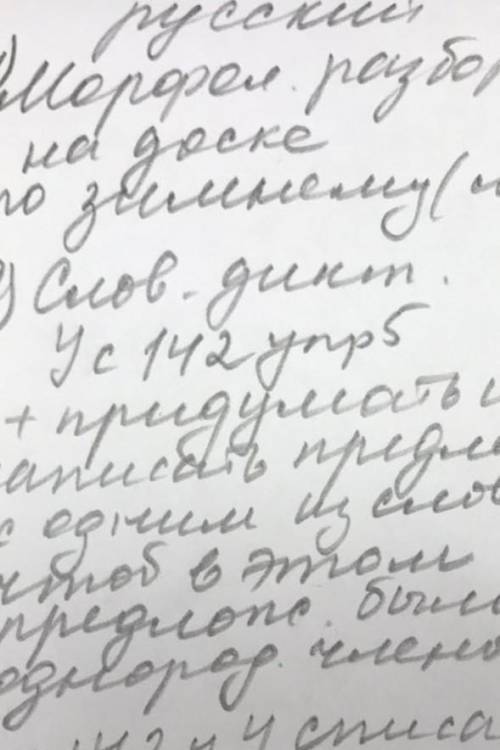 русский
Морфол. разбор
на доске
по зимнему (
2) Слов. дикт.
У с 142 упр5
+ придумать и
записать предло
с одним из слов
чтоб в этом
предлож. были
однород. члены
142 у 4 списа